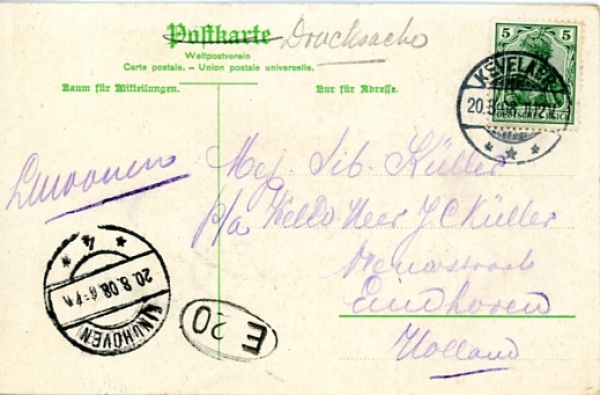 Postkarte Drucksache
Weltpostverein
Carte postale. - Union postale universelle.
Raum für Mitteilungen. Nur für Adresse.
5 5
DEUTSCHES REICH
KEVELAER
20.8.08
Mej. Sib. Küller
p/a Heer J C Küller
Eindhoven
Holland
4
20.8.08
EINDHOVEN
E 20